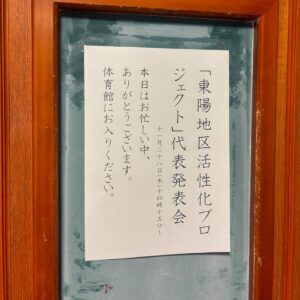 「東陽地区活性化プロ
ジェクト」代表発表会
十一月二十八日(木)十四時十五分〜
本日はお忙しい中、
ありがとうございます。
体育館にお入りください。